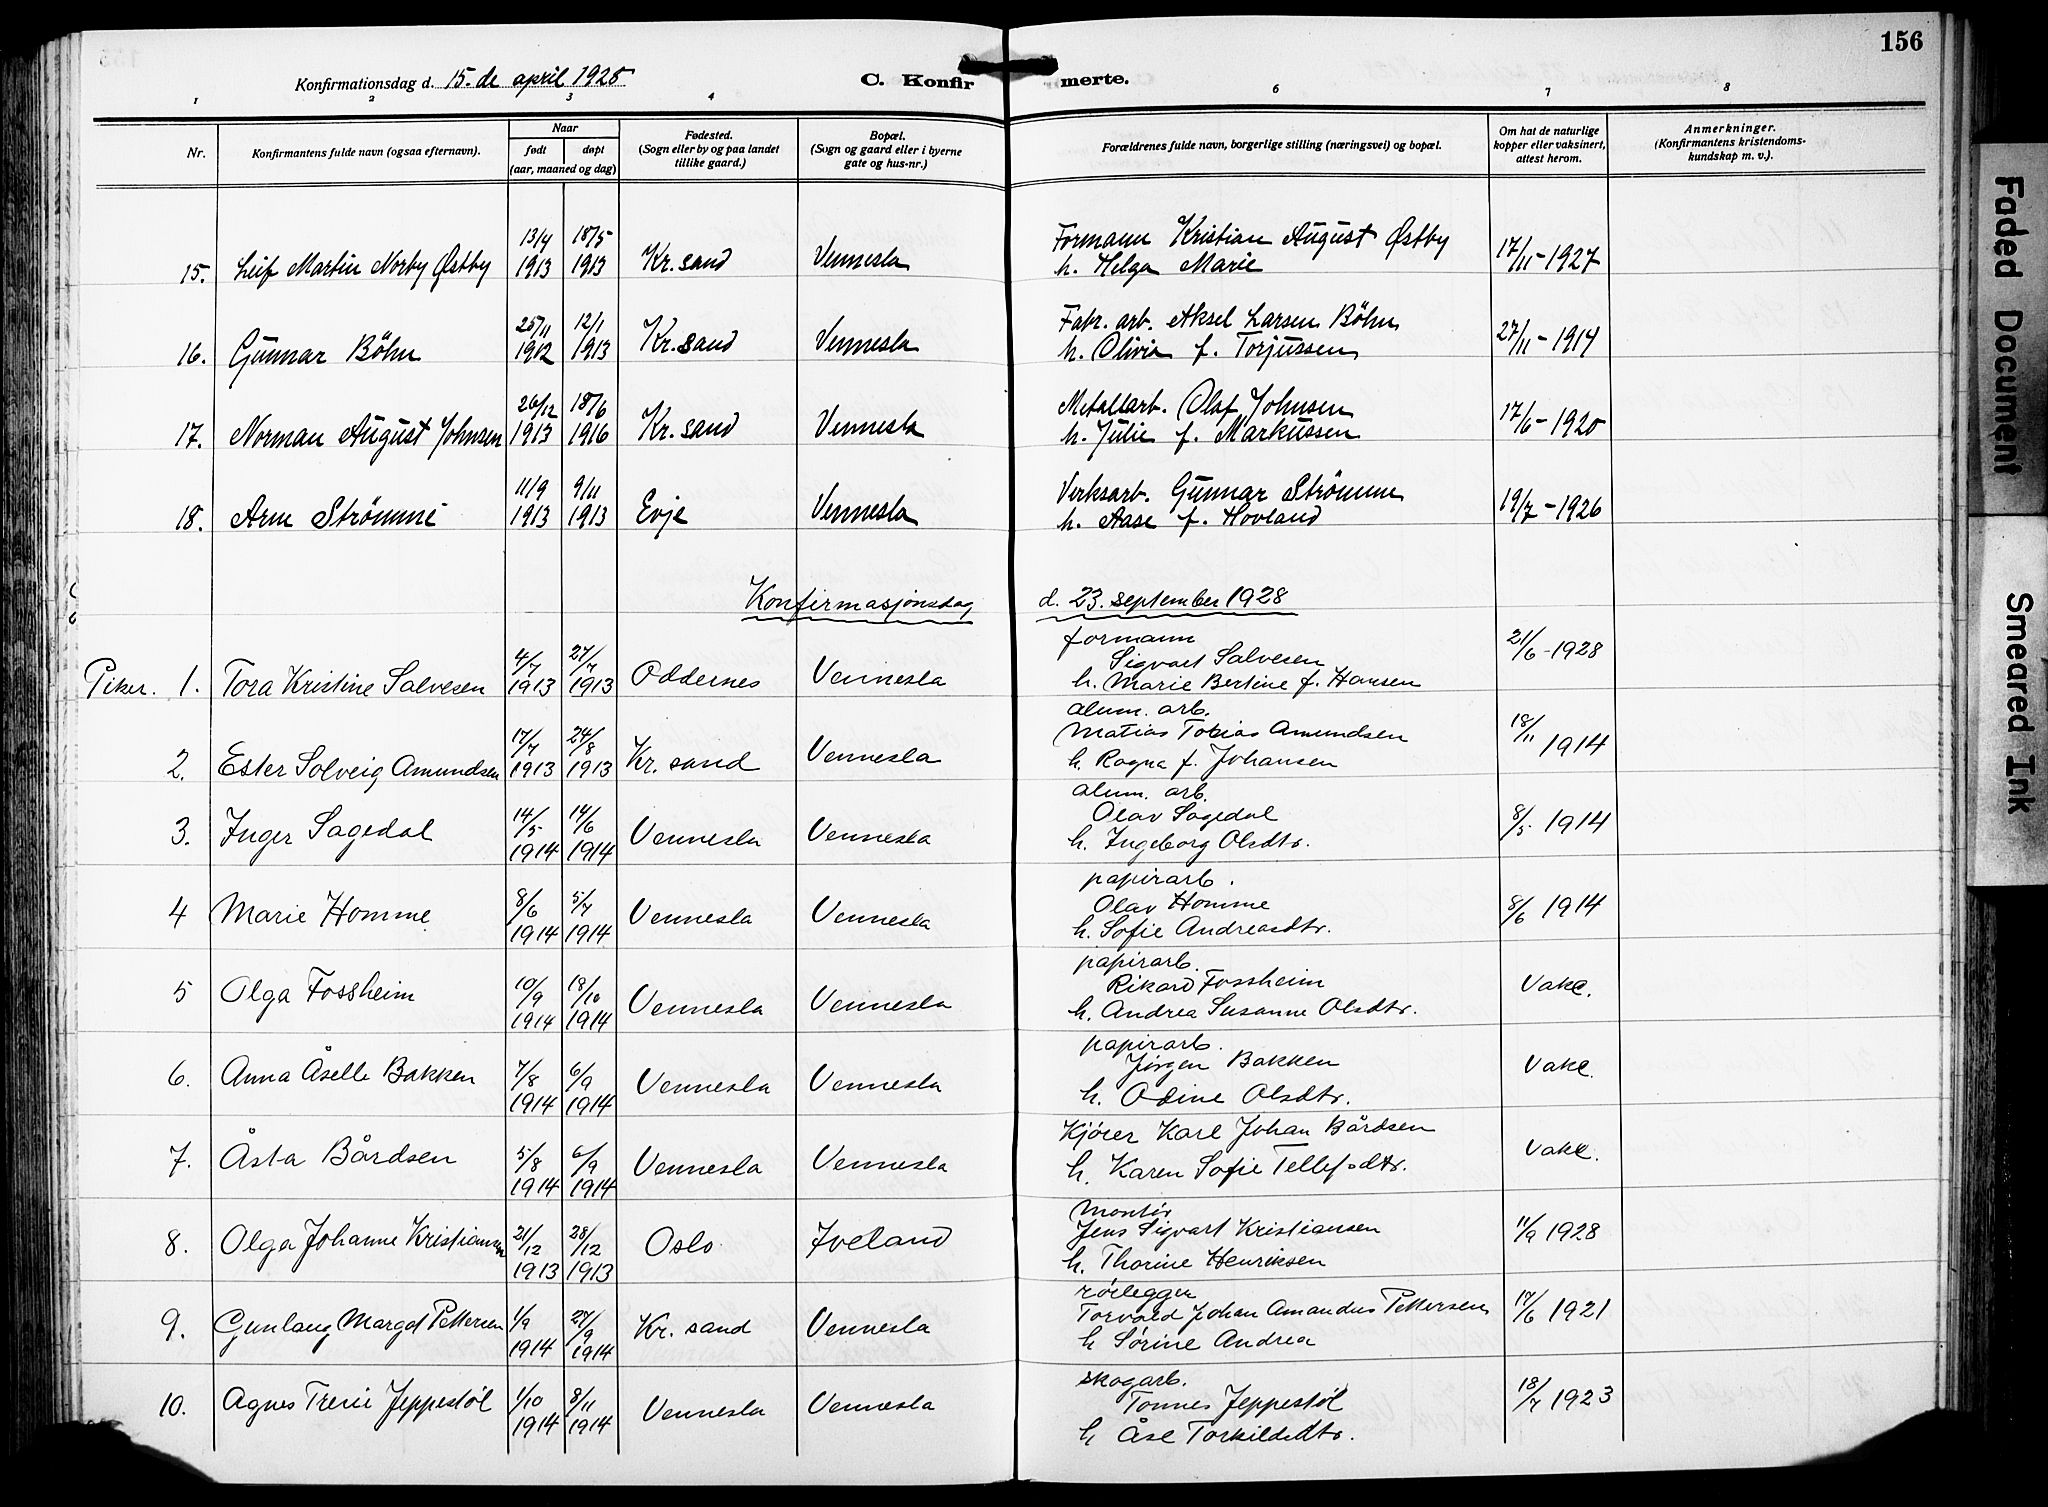 156
Konfirmationsdag d. 15. de april 1928
C. Konfirmerte.
1 2 3 4 6 7 8
Nr.
Konfirmantens fulde navn (ogsaa efternavn).
Naar
født døpt
(aar, maaned og dag)
Fødested.
(Sogn eller by og paa landet
tillike gaard.)
Bopæl.
(Sogn og gaard eller i byerne
gate og hus-nr.)
Forældrenes fulde navn, borgerlige stilling (næringsvei) og bopæl.
Om hat de naturlige
kopper eller vaksinert,
attest herom.
Anmerkninger.
(Konfirmantens kristendoms-
kundskap m. v.).
13/4 18/5 Formann Kristian August Østby
15. Leif Martin Norby Østby 1913 1913 Kr.sand Vennesla h. Helga Marie 17/11-1927
25/11 12/1 Fabr. arb. Aksel Larsen Böhn
16. Gunnar Böhn 1912 1913 Kr.sand Vennesla h. Olivia f. Torjussen 27/11-1914
26/12 18/6 Metallarb. Olaf Johnsen
17. Norman August Johnsen 1913 1916 Kr.sand Vennesla h. Julie f. Markussen 17/6-1920
11/9 9/11 Verksarb. Gunnar Strömme
18. Arne Strömme 1913 1913 Evje Vennesla h. Aase f. Hovland 19/7-1926
Konfirmasjonsdag d. 23. september 1928
formann
4/7 27/7 Sigvart Salvesen 21/6-1928
Piker. 1. Tora Kristine Salvesen 1913 1913 Oddernes Vennesla h. Marie Bertine f. Hansen
alum. arb.
17/7 24/8 Matias Tobias Amundsen 18/11 1914
2. Ester Solveig Amundsen 1913 1913 Kr. sand Vennesla h. Ragna f. Johansen
alum. arb.
14/5 14/6 Olav Sagedal 8/5 1914
3. Inger Sagedal 1914 1914 Vennesla Vennesla h. Ingeborg Olsdtr.
papirarb.
8/6 5/7 Olav Homme 8/6 1914
4 Marie Homme 1914 1914 Vennesla Vennesla h. Sofie Andreasdtr.
papirarb.
10/9 18/10 Rikard Fossheim Vakc.
5 Olga Fossheim 1914 1914 Vennesla Vennesla h. Andrea Susanne Olsdtr.
papirarb.
7/8 6/9 Jørgen Bakken Vakc.
6. Anna Åselle Bakken 1914 1914 Vennesla Vennesla h. Odine Olsdtr.
5/8 6/9 Kjører Karl Johan Bårdsen Vakc.
7. Åsta Bårdsen 1914 1914 Vennesla Vennesla h. Karen Sofie Tellefsdtr.
montør
21/12 28/12 Jens Sigvart Kristiansen 11/9 1928
8. Olga Johanne Kristiansen 1913 1913 Oslo Iveland h. Thorine Henriksen
rørlegger
1/9 27/9 Torvald Johan Amandus Pettersen 17/6 1921
9. Gunlaug Margot Pettersen 1914 1914 Kr. sand Vennesla h Sørine Andrea
skogarb.
1/10 8/11 Tønnes Jeppestøl 18/7 1923
10. Agnes Jeppestøl 1914 1914 Vennesla Vennesla h Åse Torkildsdtr.
Faded Document
Smeared Ink